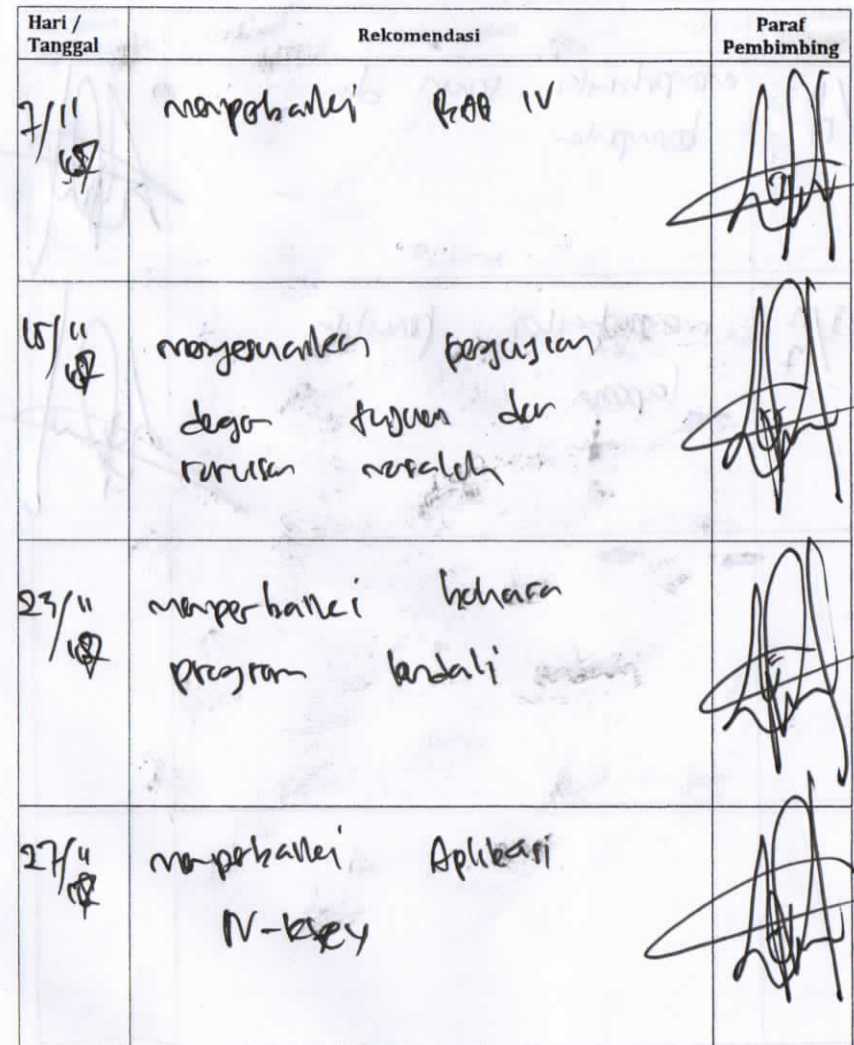 Hari / Tanggal Rekomendasi Paraf Pembimbing
7/11 memperbaiki BAB IV
15/11 menyesuaikan pengujian
dengan tujuan dan
rumusan masalah
23/11 memperbaiki bahasa
program kendali
27/11 memperbaiki Aplikasi